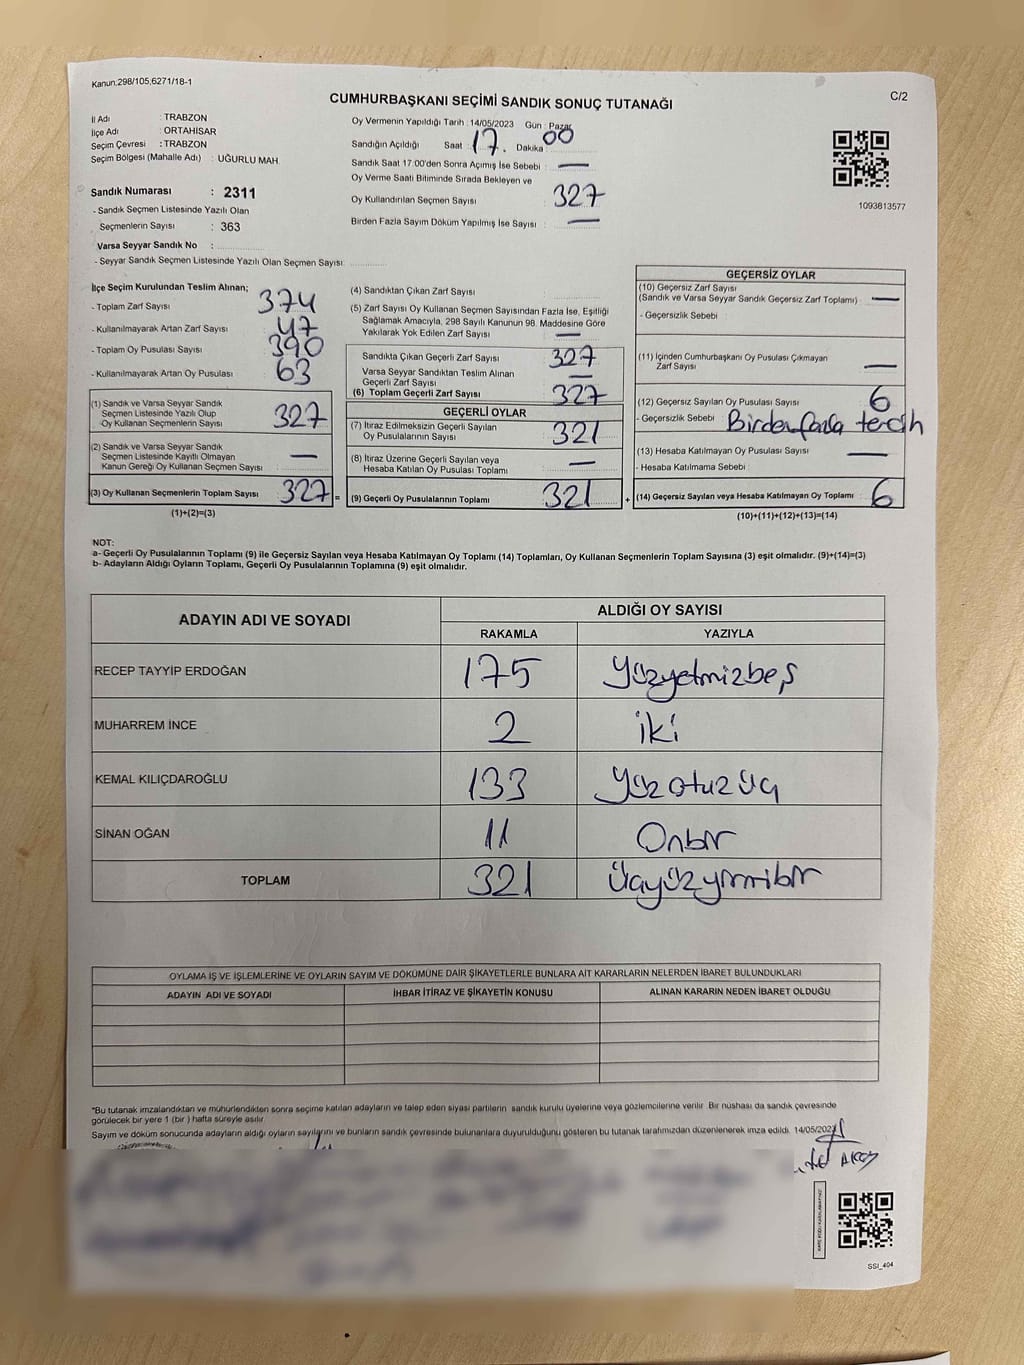 Kanun:298/105,6271/18-1
C/2
CUMHURBAŞKANI SEÇİMİ SANDIK SONUÇ TUTANAĞI
İl Adı : TRABZON
İlçe Adı : ORTAHİSAR
Seçim Çevresi : TRABZON
Seçim Bölgesi (Mahalle Adı) : UĞURLU MAH.
Sandık Numarası : 2311
- Sandık Seçmen Listesinde Yazılı Olan
Seçmenlerin Sayısı : 363
Varsa Seyyar Sandık No :
- Seyyar Sandık Seçmen Listesinde Yazılı Olan Seçmen Sayısı:
Oy Vermenin Yapıldığı Tarih :14/05/2023 Gün : Pazar
Sandığın Açıldığı Saat 17. Dakika 00
Sandık Saat 17:00'den Sonra Açımış İse Sebebi : —
Oy Verme Saati Bitiminde Sırada Bekleyen ve
Oy Kullandırılan Seçmen Sayısı 327
Birden Fazla Sayım Döküm Yapılmış İse Sayısı : —
1093813577
İlçe Seçim Kurulundan Teslim Alınan;
- Toplam Zarf Sayısı 374
- Kullanılmayarak Artan Zarf Sayısı 47
- Toplam Oy Pusulası Sayısı 390
- Kullanılmayarak Artan Oy Pusulası 63
(1) Sandık ve Varsa Seyyar Sandık
Seçmen Listesinde Yazılı Olup
Oy Kullanan Seçmenlerin Sayısı 327
(2) Sandık ve Varsa Seyyar Sandık
Seçmen Listesinde Kayıtlı Olmayan
Kanun Gereği Oy Kullanan Seçmen Sayısı —
(3) Oy Kullanan Seçmenlerin Toplam Sayısı 327 =
(1)+(2)=(3)
(4) Sandıktan Çıkan Zarf Sayısı :
(5) Zarf Sayısı Oy Kullanan Seçmen Sayısından Fazla İse, Eşitliği
Sağlamak Amacıyla, 298 Sayılı Kanunun 98. Maddesine Göre
Yakılarak Yok Edilen Zarf Sayısı —
Sandıkta Çıkan Geçerli Zarf Sayısı 327
Varsa Seyyar Sandıktan Teslim Alınan
Geçerli Zarf Sayısı —
(6) Toplam Geçerli Zarf Sayısı 327
GEÇERLİ OYLAR
(7) İtiraz Edilmeksizin Geçerli Sayılan
Oy Pusulalarının Sayısı 321
(8) İtiraz Üzerine Geçerli Sayılan veya
Hesaba Katılan Oy Pusulası Toplamı —
(9) Geçerli Oy Pusulalarının Toplamı 321 +
GEÇERSİZ OYLAR
(10) Geçersiz Zarf Sayısı
(Sandık ve Varsa Seyyar Sandık Geçersiz Zarf Toplamı) —
- Geçersizlik Sebebi :
(11) İçinden Cumhurbaşkanı Oy Pusulası Çıkmayan
Zarf Sayısı —
(12) Geçersiz Sayılan Oy Pusulası Sayısı : 6
- Geçersizlik Sebebi : Birden fazla tercih
(13) Hesaba Katılmayan Oy Pusulası Sayısı : —
- Hesaba Katılmama Sebebi :
(14) Geçersiz Sayılan veya Hesaba Katılmayan Oy Toplamı : 6
(10)+(11)+(12)+(13)=(14)
NOT:
a- Geçerli Oy Pusulalarının Toplamı (9) ile Geçersiz Sayılan veya Hesaba Katılmayan Oy Toplamı (14) Toplamları, Oy Kullanan Seçmenlerin Toplam Sayısına (3) eşit olmalıdır. (9)+(14)=(3)
b- Adayların Aldığı Oyların Toplamı, Geçerli Oy Pusulalarının Toplamına (9) eşit olmalıdır.
ADAYIN ADI VE SOYADI ALDIĞI OY SAYISI
RAKAMLA YAZIYLA
RECEP TAYYİP ERDOĞAN 175 Yüzyetmizbeş
MUHARREM İNCE 2 iki
KEMAL KILIÇDAROĞLU 133 Yüzotuzüç
SİNAN OĞAN 11 Onbir
TOPLAM 321 Üçyüzyirmibir
OYLAMA İŞ VE İŞLEMLERİNE VE OYLARIN SAYIM VE DÖKÜMÜNE DAİR ŞİKAYETLERLE BUNLARA AİT KARARLARIN NELERDEN İBARET BULUNDUKLARI
ADAYIN ADI VE SOYADI İHBAR İTİRAZ VE ŞİKAYETİN KONUSU ALINAN KARARIN NEDEN İBARET OLDUĞU
*Bu tutanak imzalandıktan ve mühürlendikten sonra seçime katılan adayların ve talep eden siyasi partilerin sandık kurulu üyelerine veya gözlemcilerine verilir. Bir nüshası da sandık çevresinde
görülecek bir yere 1 (bir) hafta süreyle asılır.
Sayım ve döküm sonucunda adayların aldığı oyların sayılarını ve bunların sandık çevresinde bulunanlara duyurulduğunu gösteren bu tutanak tarafımızdan düzenlenerek imza edildi. 14/05/2023
SSI_404